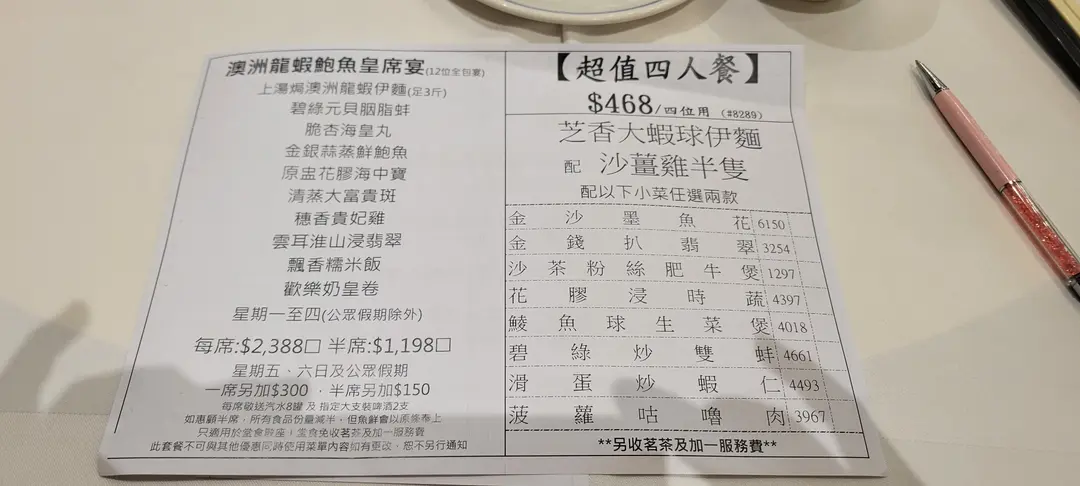 澳洲龍蝦鮑魚皇席宴(12位全包宴)
上湯焗澳洲龍蝦伊麵(足3斤)
碧綠元貝胭脂蚌
脆杏海皇丸
金銀蒜蒸鮮鮑魚
原盅花膠海中寶
清蒸大富貴斑
穗香貴妃雞
雲耳淮山浸翡翠
飄香糯米飯
歡樂奶皇卷
星期一至四(公眾假期除外)
每席:$2,388□ 半席:$1,198□
星期五、六日及公眾假期
一席另加$300 ﹐半席另加$150
每席敬送汽水8罐 及 指定大支裝啤酒2支
如惠顧半席﹐所有食品份量減半﹐但魚鮮會以原條奉上
只適用於堂會
堂食免收茗茶及加一服務費
此套餐不可與其他優惠同時使用菜單內容如有更改﹐恕不另行通知
【超值四人餐】
$468/四位用 (#8289)
芝香大蝦球伊麵
配 沙薑雞半隻
配以下小菜任選兩款
金沙墨魚花 6150
金錢扒翡翠 3254
沙茶粉絲肥牛煲 1297
花膠浸時蔬 4397
鯪魚球生菜煲 4018
碧綠炒雙蚌 4661
滑蛋炒蝦仁 4493
菠蘿咕嚕肉 3967
**另收茗茶及加一服務費**